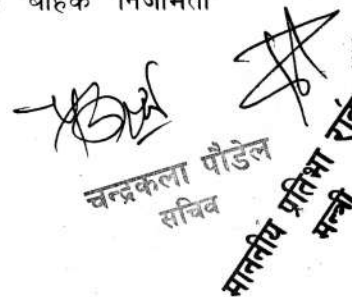 बाहेक निजामती
चन्द्रकला पौडेल
सचिव
माननीय प्रतिभा
मन्त्री